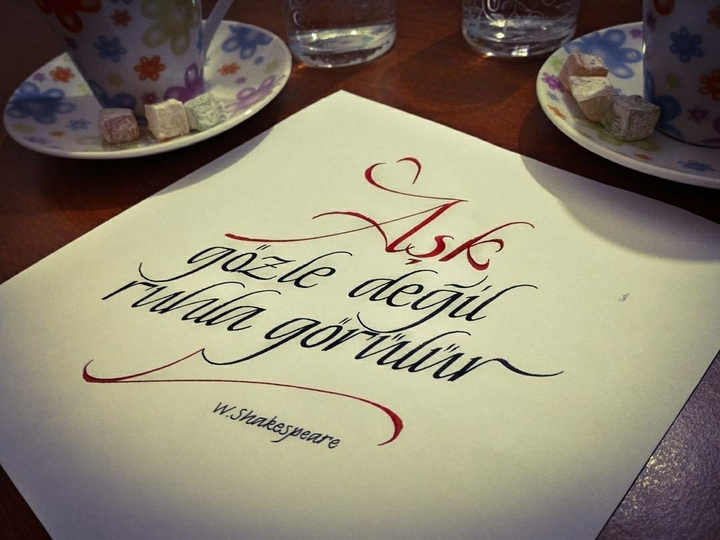 Aşk
gözle değil
ruhla görülür
W.Shakespeare